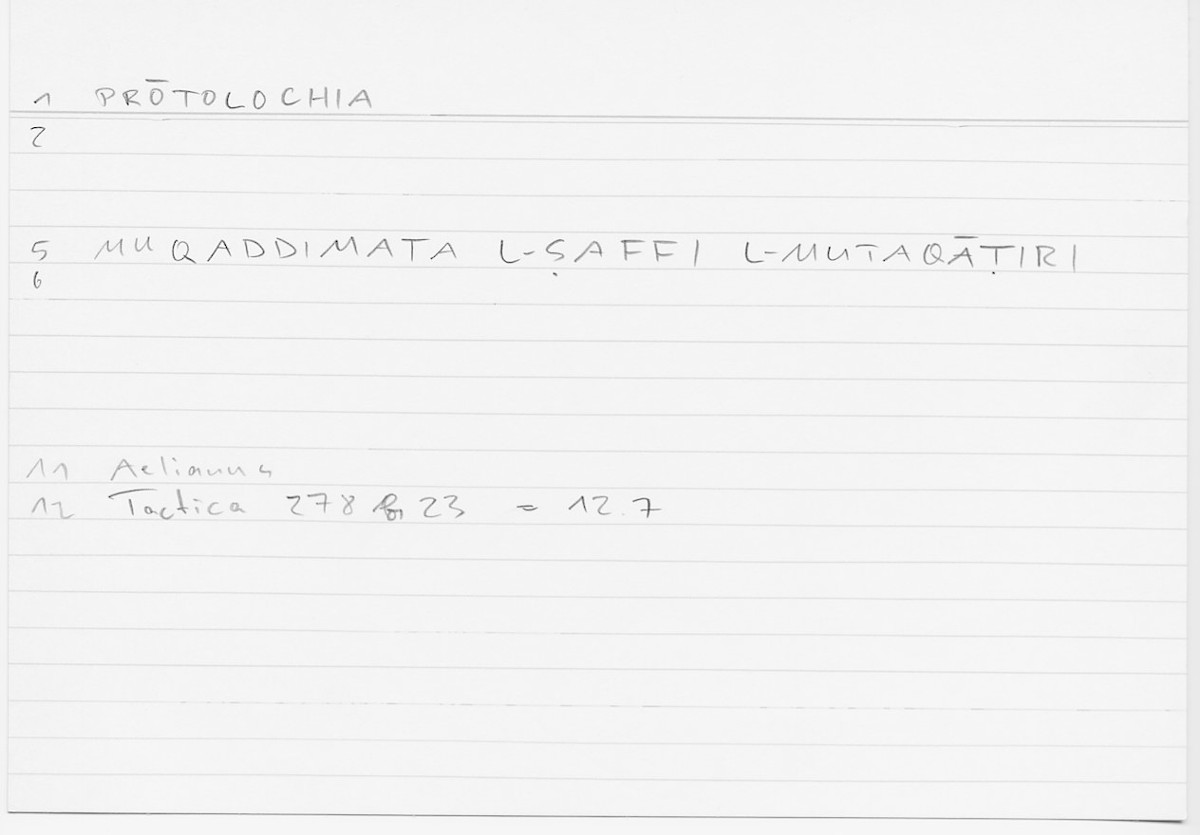 1 PRŌTOLOCHIA
2
5 MUQADDIMATA L-ṢAFFI L-MUTAQĀṬIRI
6
11 Aelianus
12 Tactica 278 23 = 12.7